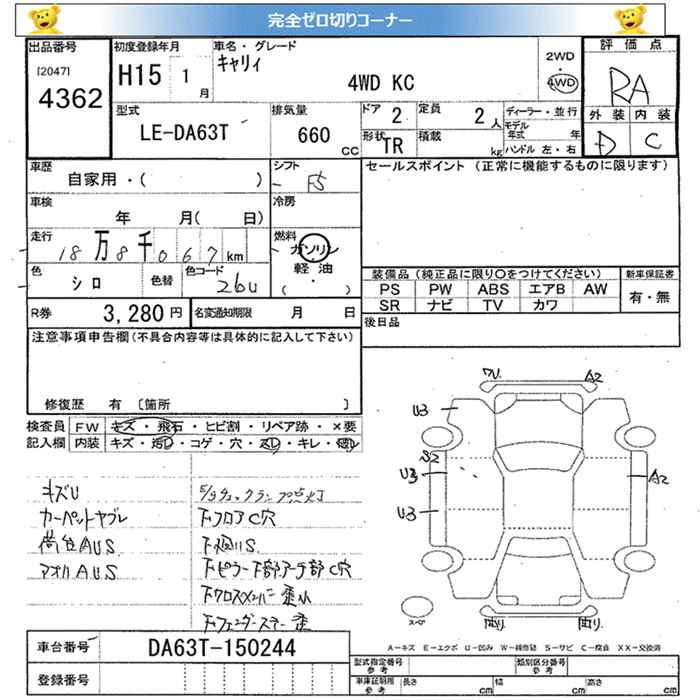 完全ゼロ切りコーナー
出品番号
[2047]
4362
初度登録年月
H15 1月
車名・グレード
キャリィ
4WD KC
2WD
・
4WD
評価点
RA
外装 内装
D C
型式
LE-DA63T
排気量
660 CC
ドア 2
定員 2人
形状 TR
積載 kg
ディーラー・並行
モデル年式 年
ハンドル 左・右
車歴
自家用・( )
シフト
F5
セールスポイント (正常に機能するものに限ります)
車検
年 月( 日)
冷房
走行
18万8千067km
燃料
ガソリン
軽油
( ・ )
色
シロ
色替
色コード
26U
装備品 (純正品に限り○をつけてください)
PS PW ABS エアB AW
SR ナビ TV カワ
新車保証書
有・無
R券 3,280円
名変通知期限 月 日
後日品
注意事項申告欄(不具合内容等は具体的に記入して下さい)
修復歴 有 [箇所 ]
検査員記入欄
FW キズ・飛石・ヒビ割・リペア跡・×要
内装 キズ・汚レ・コゲ・穴・スレ・キレ・欠品
キズU
カーペットヤブレ
荷台AUS
アオリAUS
下フロアC穴
下廻りS
下ピラー下部アーチ部C穴
下クロスメンバー歪み
A2
U3
S2
U3
U3
A2
スペア
A-キズ E-エクボ U-凹み W-補修跡 S-サビ C-腐食 XX-交換済
車台番号 DA63T-150244
登録番号
型式指定番号 参考
類別区分番号 参考
車庫証明用 参考 長さ cm 幅 cm 高さ cm